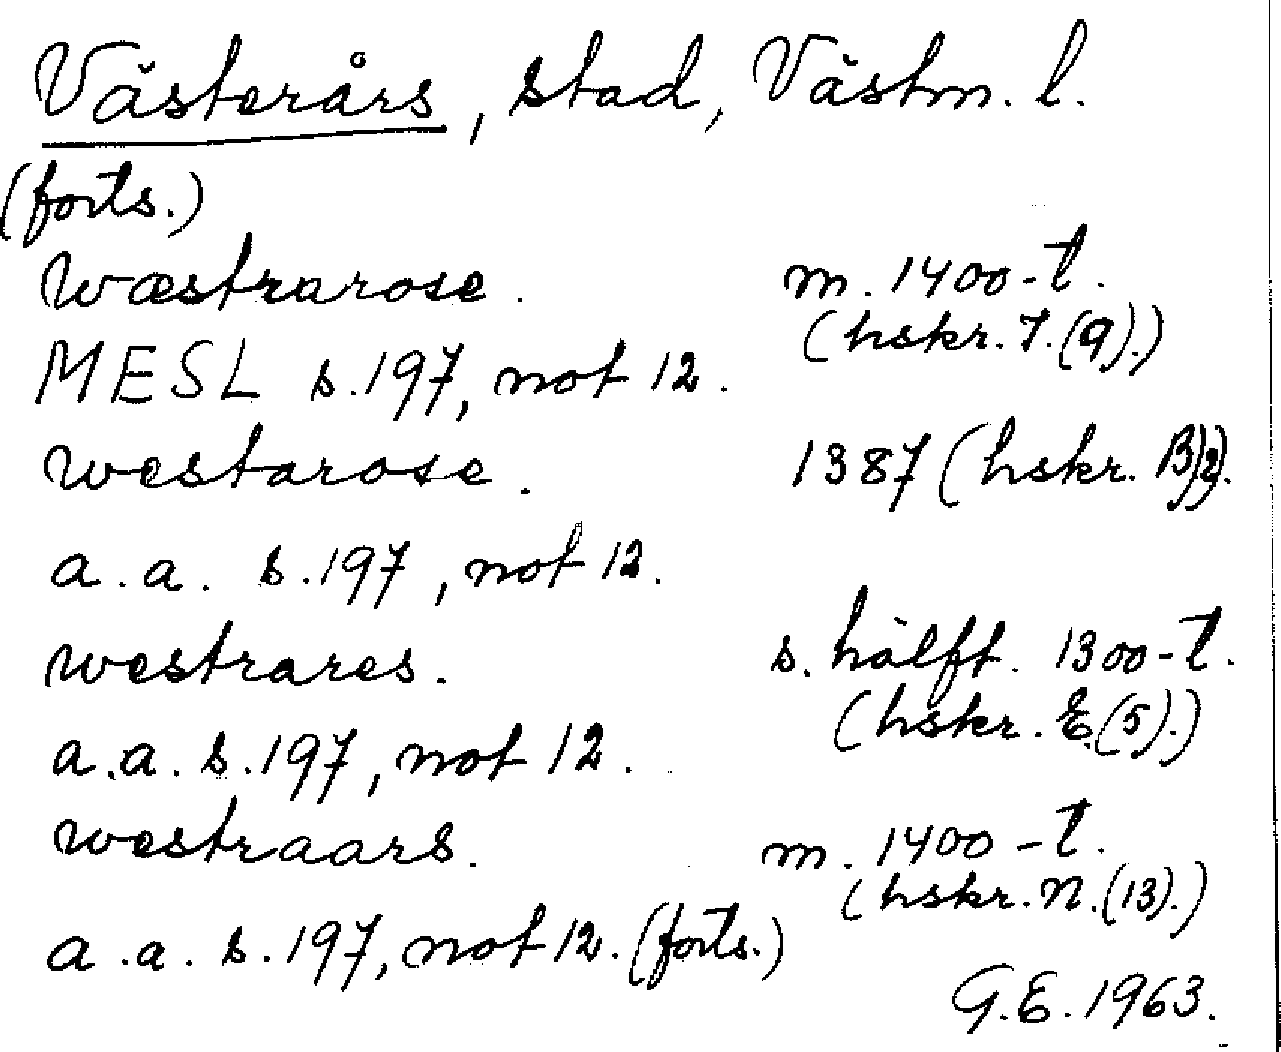 Västerårs, stad, Västm. l.
(forts.)
wæstrarose. m. 1400-t.
(hskr. J. (9).)
MESL s. 197, not 12.
westarose. 1387 (hskr. B)2).
a. a. s. 197, not 12.
westrares. s. hälft. 1300-t.
(hskr. E.(5).)
a. a. s. 197, not 12.
westraars. m. 1400-t.
(hskr. N. (13).)
a. a. s. 197, not 12. (forts.)
G. E. 1963.